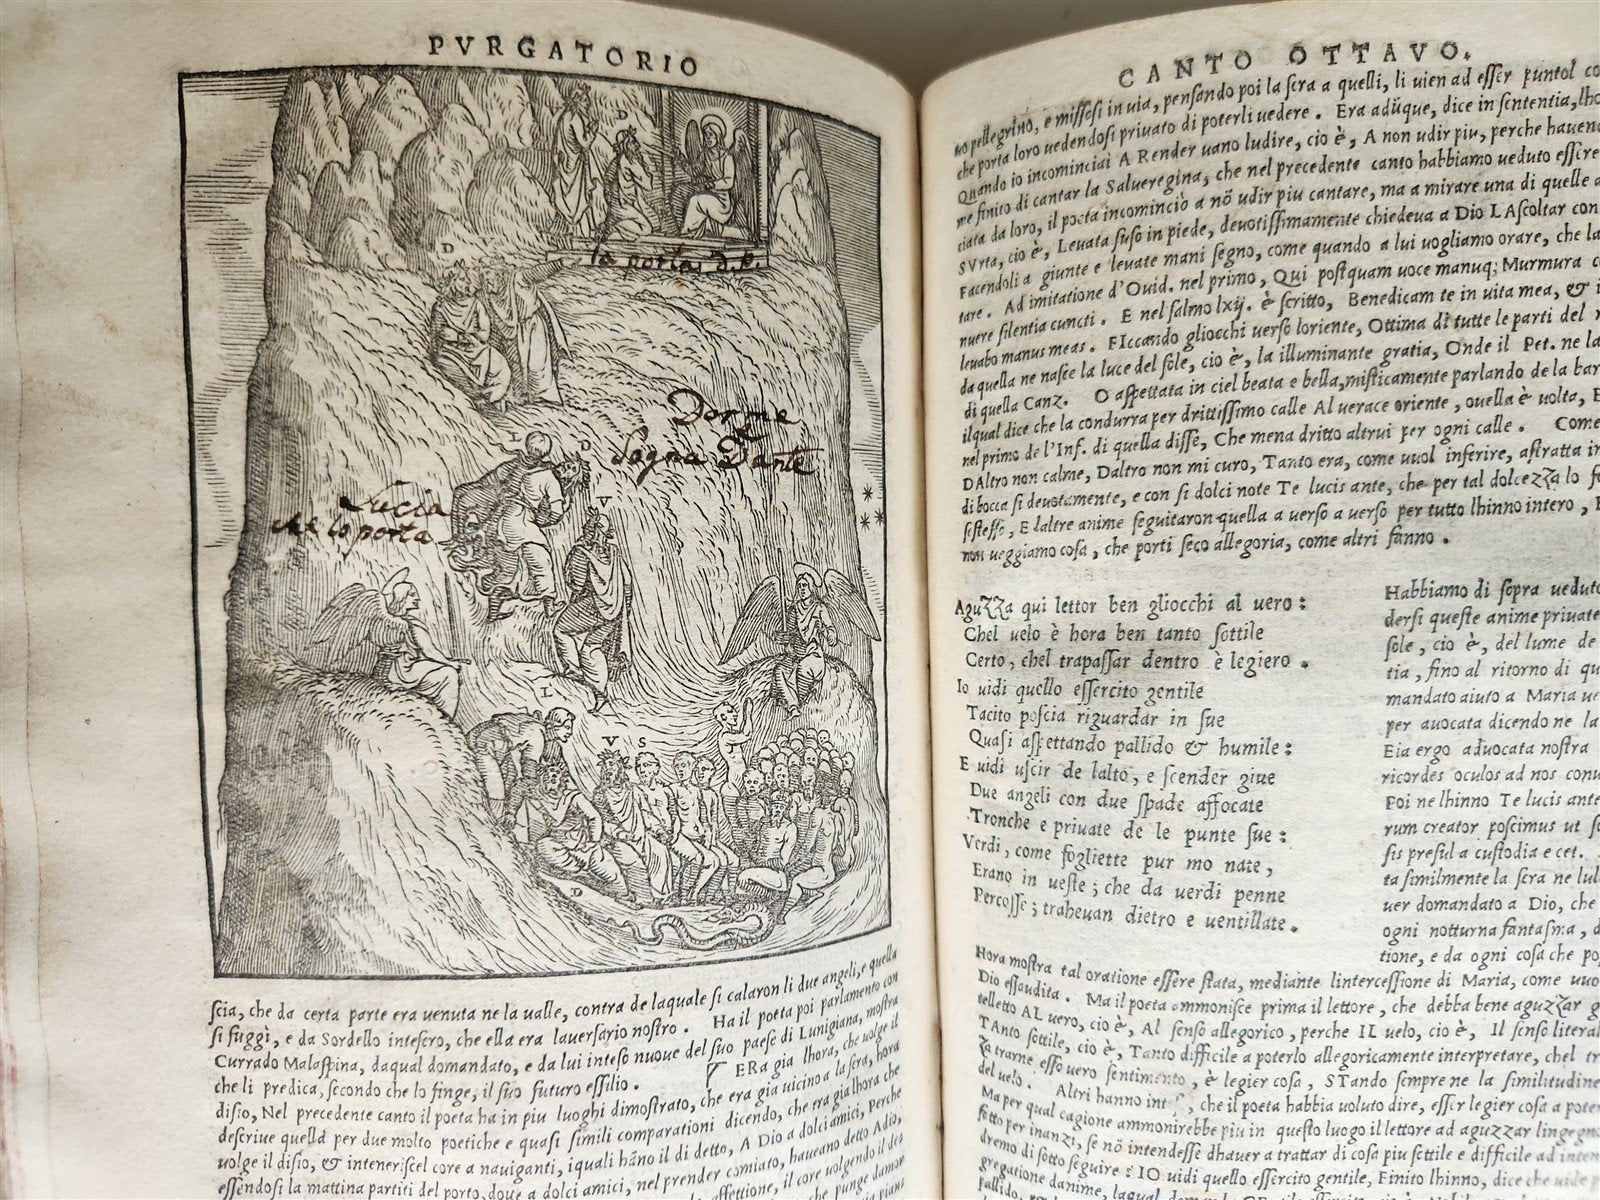 PVRGATORIO
D
D
la porta d. P.
D
Dorme
&
Sogna Dante
L
D
V
Lucia
che lo porta
L
V S
D
scia, che da certa parte era venuta ne la ualle, contra de laquale si calaron li due angeli, e quella
si fuggì, e da Sordello intesero, che ella era lauersario nostro. Ha il poeta poi parlamento con
Currado Malaspina, daqual domandato, e da lui inteso nuoue del suo paese di Lunigiana, mostra
che li predica, secondo che lo finge, il suo futuro essilio. ERa gia lhora, che uolge il
disio, Nel precedente canto il poeta ha in piu luoghi dimostrato, che era gia uicino a la sera, hora
descriue quella per due molto poetiche e quasi simili comparationi dicendo, che era gia lhora che
uolge il disio, & intenerisce l core a nauiganti, iquali hãno il di detto, A Dio a dolci amici, perche
essendosi la mattina partiti del porto, doue a dolci amici, nel prender comiato, haueano detto Adio,
CANTO OTTAVO.
uo pellegrino, e missesi in uia, pensando poi la sera a quelli, li uien ad esser puntol co
che porta loro uedendosi priuato di poterli uedere. Era adũque, dice in sententia, lho
Quando io incominciai A Render uano ludire, cio è, A non udir piu, perche hauen
me finito di cantar la Salueregina, che nel precedente canto habbiamo ueduto essere
ciata da loro, il poeta incominciò a nõ udir piu cantare, ma a mirare una di quelle a
SVrta, cio è, Leuata suso in piede, deuotissimamente chiedeua a Dio L Ascoltar con
Facendoli a giunte e leuate mani segno, come quando a lui uogliamo orare, che la
tare. Ad imitatione d'Ouid. nel primo, Qui postquam uoce manuq; Murmura c
nuere silentia cuncti. E nel salmo lxij. è scritto, Benedicam te in uita mea, & i
leuabo manus meas. FIccando gliocchi uerso loriente, Ottima di tutte le parti del
da quella ne nasce la luce del sole, cio è, la illuminante gratia, Onde il Pet. ne la
di quella Canz. O aspettata in ciel beata e bella, misticamente parlando de la bar
ilqual dice che la condurra per drittissimo calle Al uerace oriente, ouella è uolta, E
nel primo de l'Inf. di quella disse, Che mena dritto altrui per ogni calle. Come
DAltro non calme, Daltro non mi curo, Tanto era, come uuol inferire, astratta in
di bocca si deuotamente, e con si dolci note Te lucis ante, che per tal dolcezza lo f
sestesso, E daltre anime seguitaron quella a uerso a uerso per tutto lhinno intero,
non ueggiamo cosa, che porti seco allegoria, come altri fanno.
Aguzza qui lettor ben gliocchi al uero:
Chel uelo è hora ben tanto sottile
Certo, chel trapassar dentro è legiero.
Io uidi quello essercito gentile
Tacito poscia riguardar in sue
Quasi aspettando pallido & humile:
E uidi uscir de lalto, e scender giue
Due angeli con due spade affocate
Tronche e priuate de le punte sue:
Verdi, come fogliette pur mo nate,
Erano in ueste; che da uerdi penne
Percosse; traheuan dietro e uentillate.
Habbiamo di sopra ueduto
dersi queste anime priuate
sole, cio è, del lume de
tia, fino al ritorno di qu
mandato aiuto a Maria ue
per auocata dicendo ne la
Eia ergo aduocata nostra
ricordes oculos ad nos conu
Poi ne lhinno Te lucis ante
rum creator poscimus ut s
sis presul a custodia e cet.
ta similmente la sera ne lul
uer domandato a Dio, che
ogni notturna fantasma, d
tione, e da ogni cosa che po
Hora mostra tal oratione essere stata, mediante lintercessione di Maria, come uuo
Dio essaudita. Ma il poeta ammonisce prima il lettore, che debba bene aguzzar g
telletto AL uero, cio è, Al senso allegorico, perche IL uelo, cio è, Il senso literal
TAnto sottile, cio è, Tanto difficile a poterlo allegoricamente interpretare, chel tr
za trarne esso uero sentimento, è legier cosa, STando sempre ne la similitudine
del uelo. Altri hanno che il poeta habbia uoluto dire, esser legier cosa a poter
Ma per qual cagione ammonirebbe piu in questo luogo il lettore ad aguzzar lingegno
sotto per inanzi, se nõ intendesse dhauer a trattar di cosa piu sottile e difficile ad inten
dremo di sotto seguire: IO uidi quello essercito gentile, Finito lhinno, dice che uide